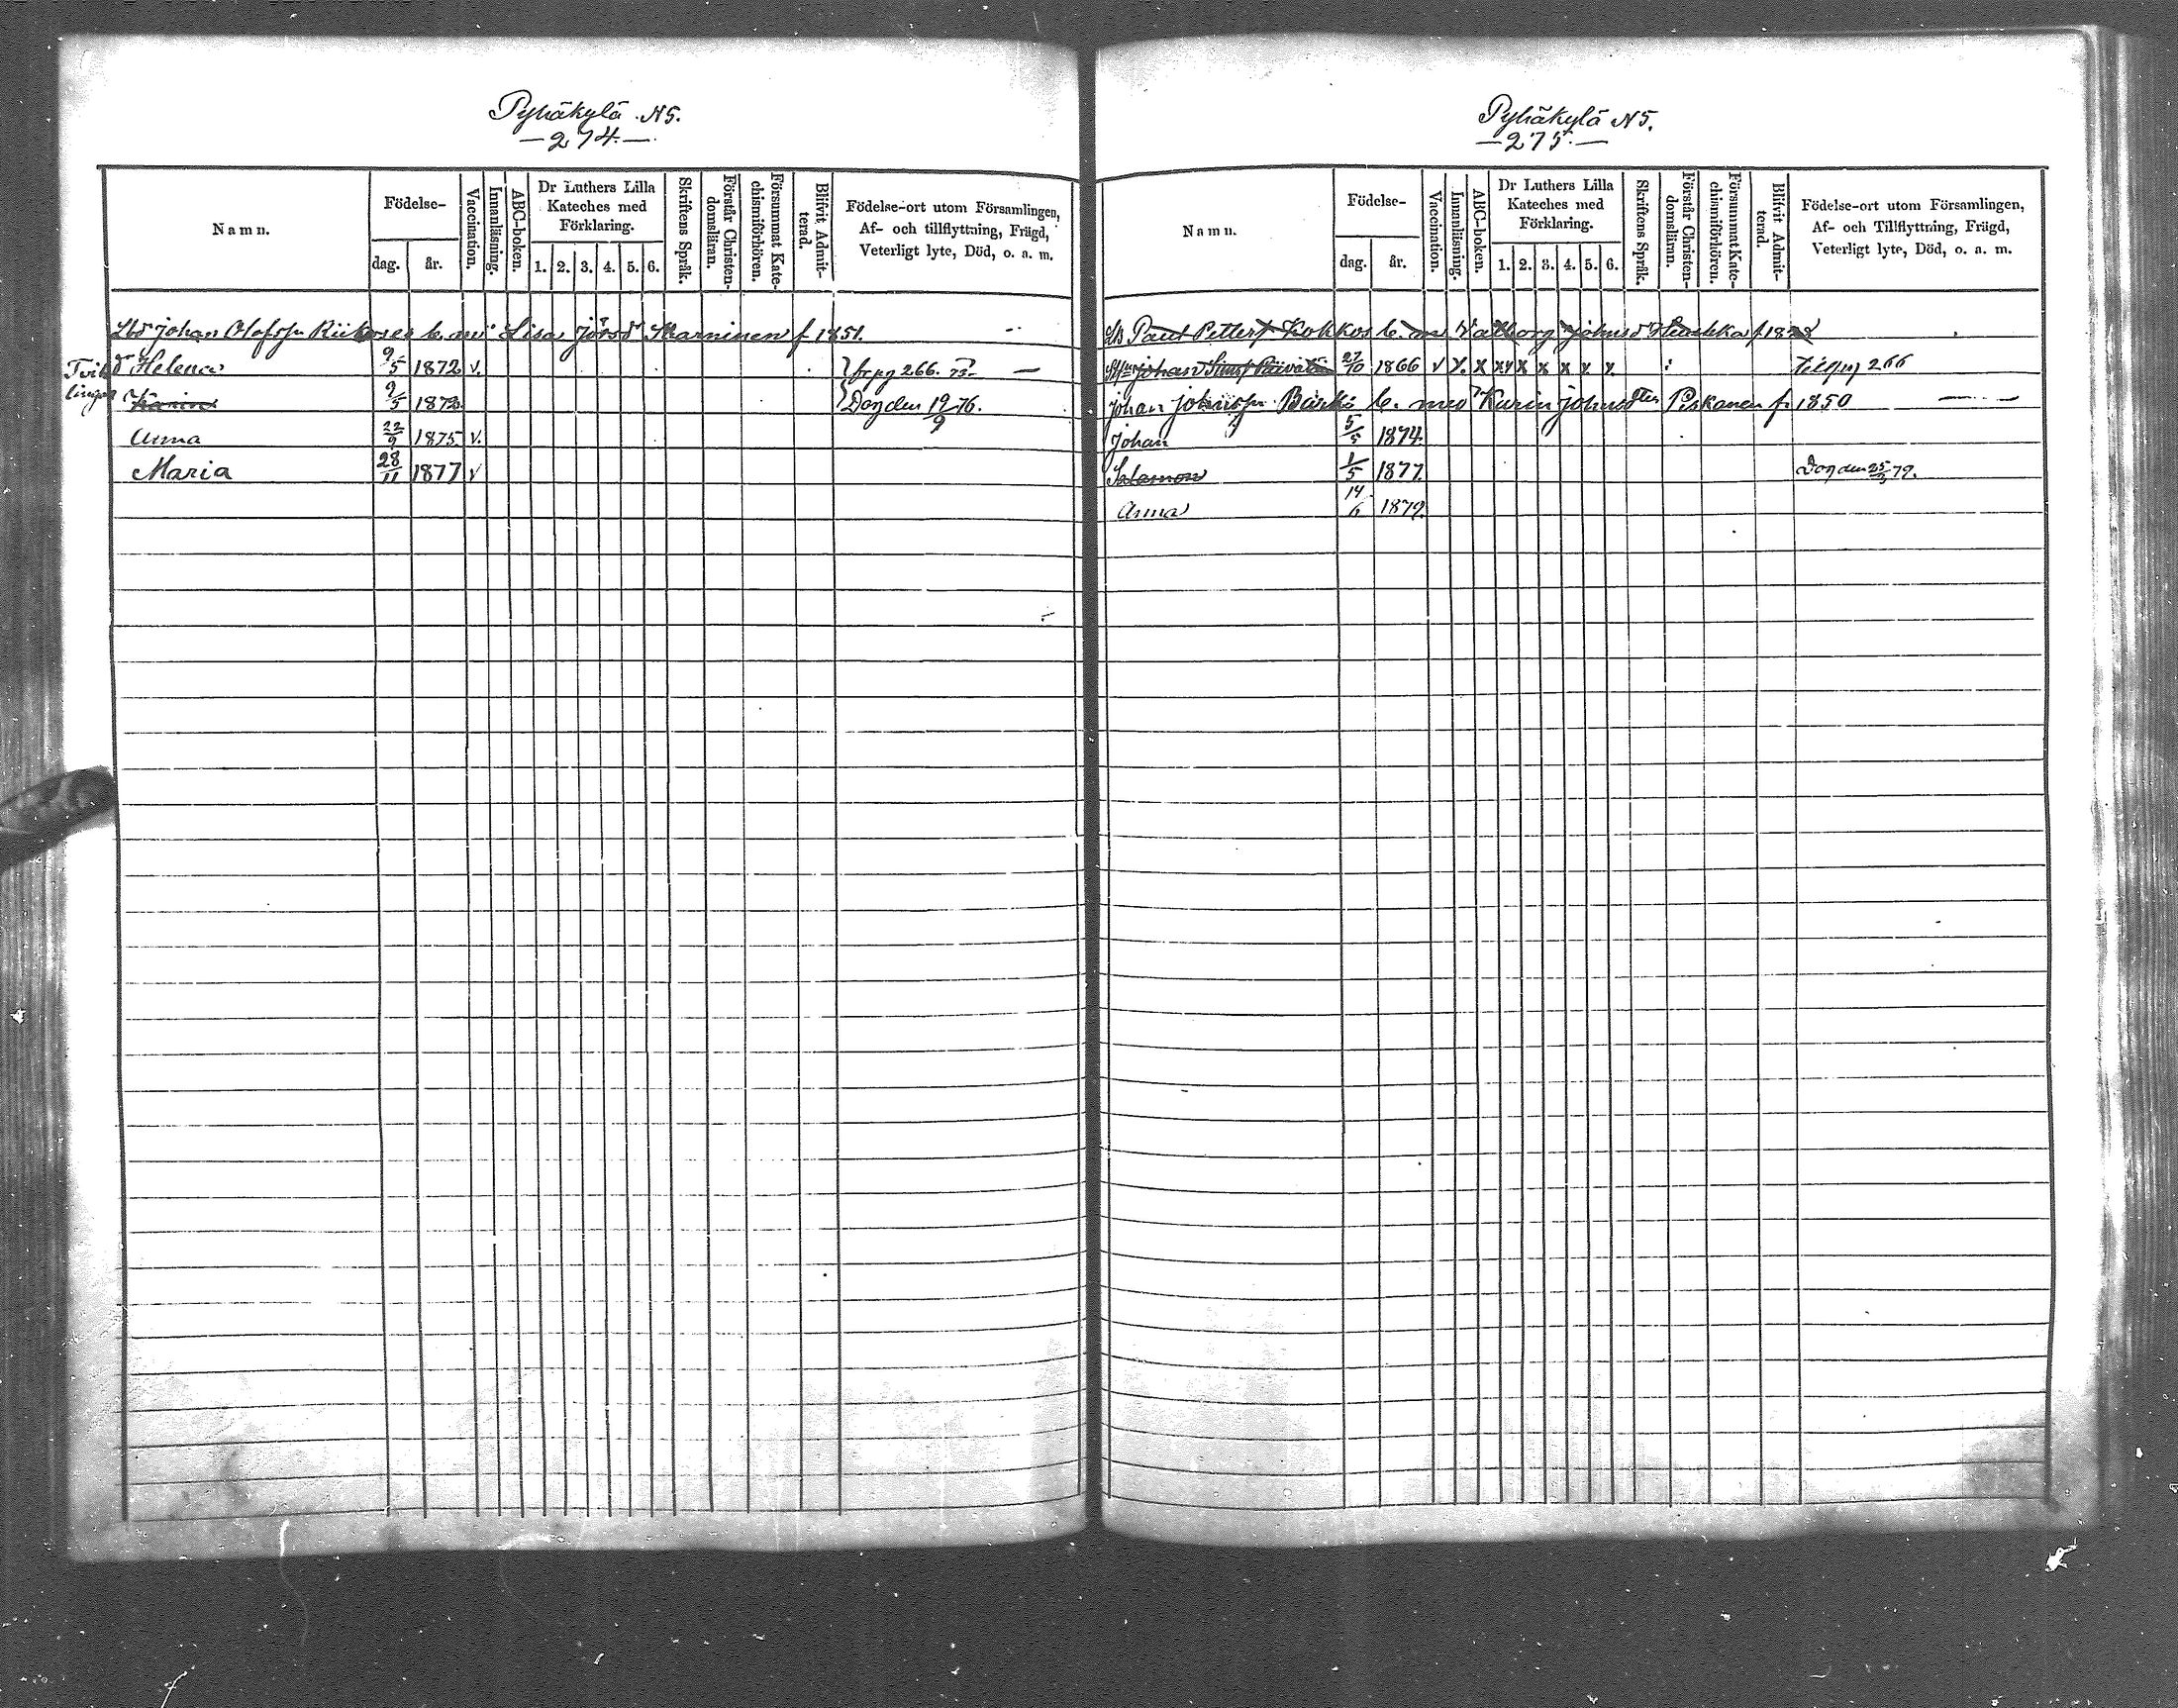 Pyhäkylä N5.
— 274. —
Namn.
Födelse-
dag.
år.
Vaccination.
Innanläsning.
ABC-boken.
Dr Luthers Lilla
Kateches med
Förklaring.
1. 2. 3. 4. 5. 6.
Skriftens Språk.
Förstår Christen-
domsläran.
Försummat Kate-
chismiförhören.
Blifvit Admit-
terad.
Födelse-ort utom Församlingen,
Af- och tillflyttning, Frägd,
Veterligt lyte, Död, o. a. m.
Johan Olofss. b. m. Lisa f 1851.
Helena 9/5 1872 v. fr pg 266. 75 —
Karin 9/5 1872 Dog den 19/9 76.
Anna 22/9 1875 v.
Maria 28/11 1877 v
Pyhäkylä N5.
— 275. —
Namn.
Födelse-
dag.
år.
Vaccination.
Innanläsning.
ABC-boken.
Dr Luthers Lilla
Kateches med
Förklaring.
1. 2. 3. 4. 5. 6.
Skriftens Språk.
Förstår Christen-
domsläran.
Försummat Kate-
chismiförhören.
Blifvit Admit-
terad.
Födelse-ort utom Församlingen,
Af- och Tillflyttning, Frägd,
Veterligt lyte, Död, o. a. m.
Paul Petters. Kokkos b. m. Valborg Johnsd
Johan 27/10 1866 v x. x xv x x x v v. till pg 266
Johan Johnss. b. med Karin Johnsdter Piskanen f. 1850 — —
Johan 5/5 1874.
Salamon 1/5 1877. Dog den 25 79.
Anna 14/6 1879.